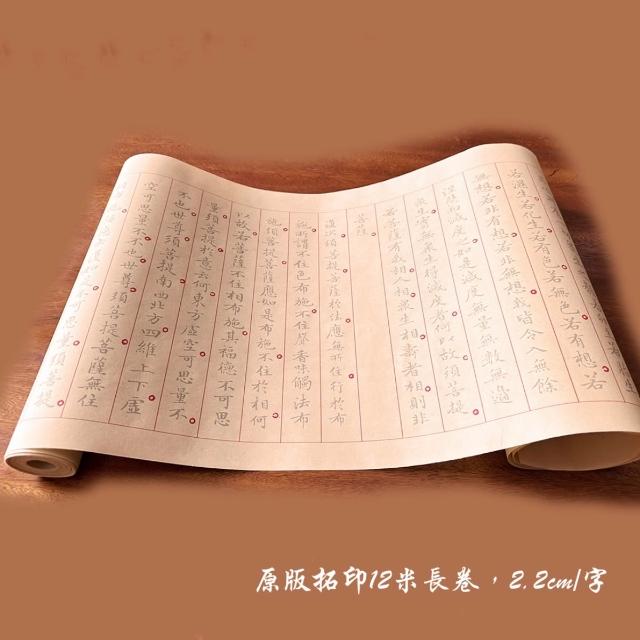 若濕生若化生若有色若無色若有想若
無想若非有想若非無想我皆令入無餘
涅槃而滅度之如是滅度無量無數無邊
眾生實無眾生得滅度者何以故須菩提
若菩薩有我相人相眾生相壽者相則非
菩薩
復次須菩提菩薩於法應無所住行於布
施所謂不住色布施不住聲香味觸法布
施須菩提菩薩應如是布施不住於相何
以故若菩薩不住相布施其福德不可思
量須菩提於意云何東方虛空可思量不
不也世尊須菩提南西北方四維上下虛
空可思量不不也世尊須菩提菩薩無住
不可思量須菩提
原版拓印12米長卷，2.2cm/字